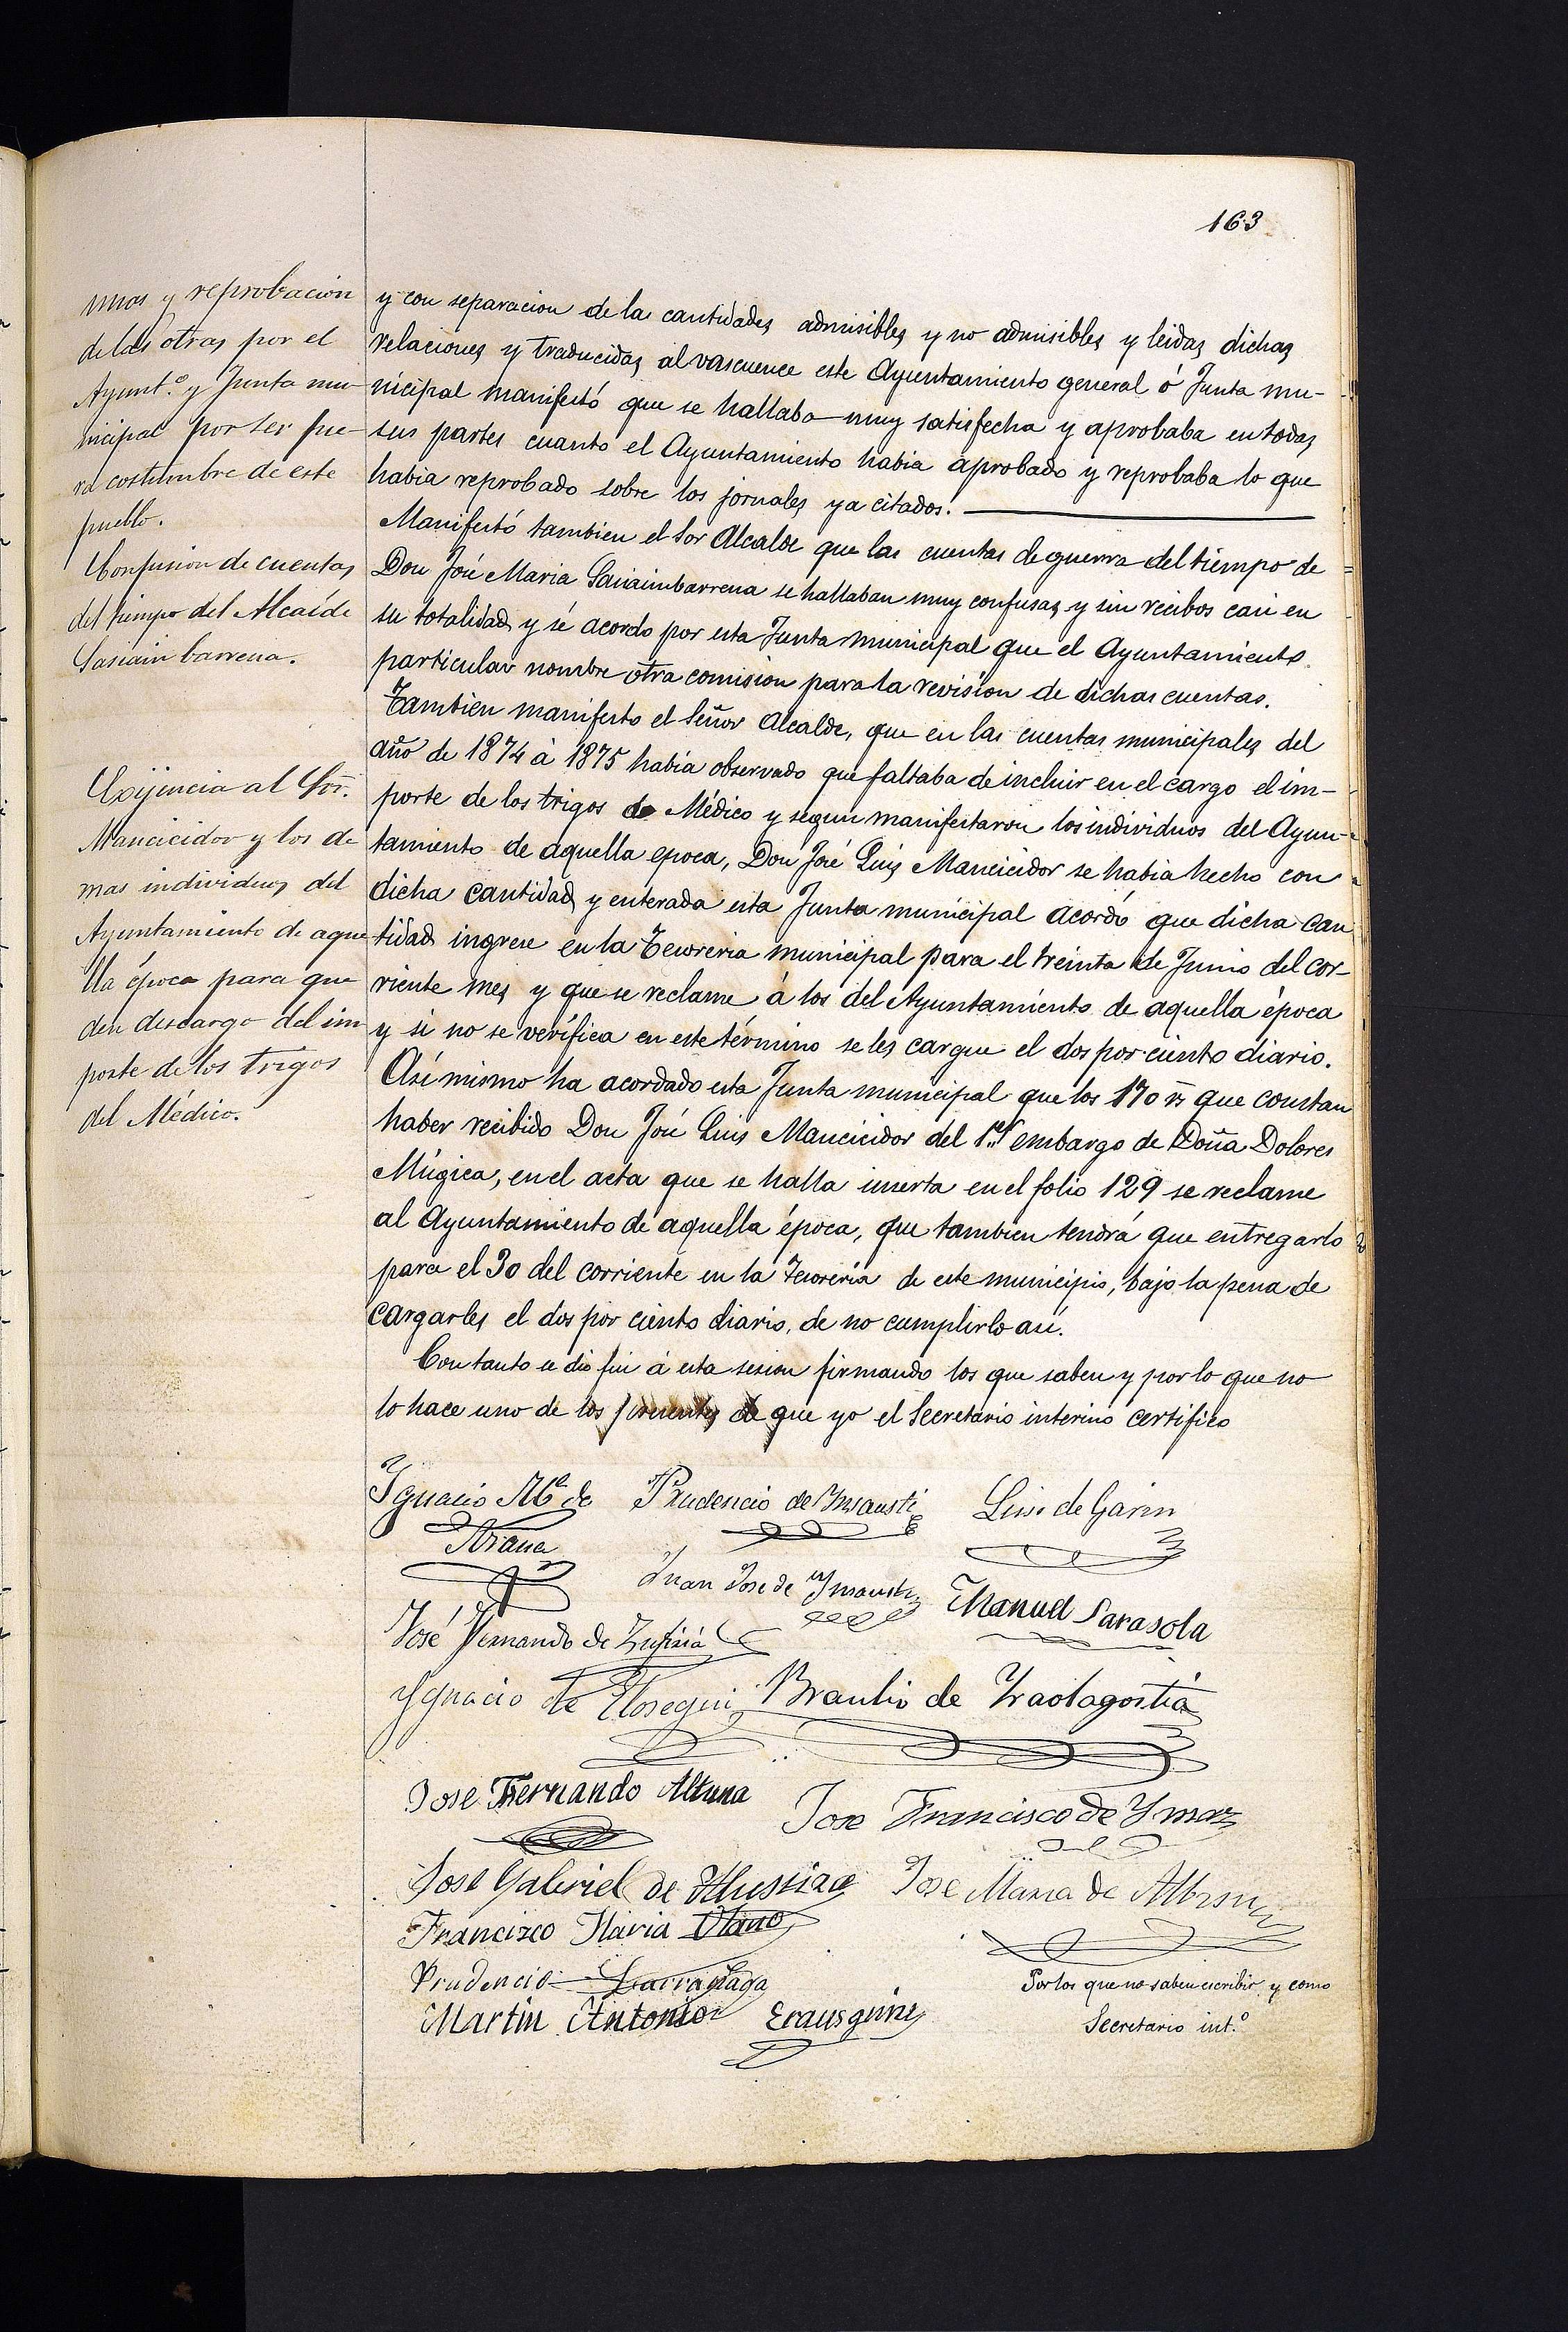 163
unos y reprobacion
de las otras por el
Ayunt.º y Junta mu-
nicipal por ser fue-
ra costumbre de este
pueblo.
Confusion de cuentas
del tiempo del Alcalde
Sasiain barrena.
Exijencia al Sor.
Mancicidor y los de
mas individuos del
Ayuntamiento de aque
lla época para que
den descargo del im
porte de los trigos
del Médico.
y con separacion de la cantidades admisibles y no admisibles y leidas dichas
relaciones y traducidas al vascuence este Ayuntamiento general ó Junta mu-
nicipal manifestó que se hallaba muy satisfecha y aprobaba en todas
sus partes cuanto el Ayuntamiento habia aprobado y reprobaba lo que
habia reprobado sobre los jornales ya citados.
Manifestó tambien el Sor Alcalde que las cuentas de guerra del tiempo de
Don José Maria Sasiainbarrena se hallaban muy confusas y sin recibos casi en
su totalidad y sé acordo por esta Junta municipal que el Ayuntamiento
particular nombre otra comision para la revision de dichas cuentas.
Tambien manifesto el Señor Alcalde, que en las cuentas municipales del
año de 1874 á 1875 habia observado que faltaba de incluir en el cargo el im-
porte de los trigos de Médico y segun manifestaron los individuos del Ayun-
tamiento de aquella epoca, Don José Luis Mancicidor se habia hecho con
dicha cantidad y enterada esta Junta municipal acordó que dicha can
tidad ingrese en la Tesoreria municipal para el treinta de Junio del cor-
riente mes y que se reclame á los del Ayuntamiento de aquella época
y si no se verifica en este término se les cargue el dos por ciento diario.
Asímismo ha acordado esta Junta municipal que los 170 rs que constan
haber recibido Don José Luis Mancicidor del 1er embargo de Doña Dolores
Múgica, en el acta que se halla inserta en el folio 129 se reclame
al Ayuntamiento de aquella época, que tambien tendrá que entregarlo
para el 30 del corriente en la Tesoreria de este municipio, bajo la pena de
cargarles el dos por ciento diario, de no cumplirlo así.
Con tanto se dio fin á esta sesion firmando los que saben y por lo que no
lo hace uno de los presentes de que yo el Secretario interino certifico
Ygnacio Mª de Prudencio de Ynsausti Luis de Garin
Arana
Juan Jose de Ynsausti Manuel Sarasola
José Fernando de Zufiria
Ygnacio de Elosegui Braulio de Yraolagoitia
Jose Fernando Altuna
Jose Francisco de Ymaz
Jose Gabriel de Jose Maria de
Francisco Maria Olano
Prudencio Larrañaga
Martin Antonio Erausquin
Por los que no saben escribir y como
Secretario int.º